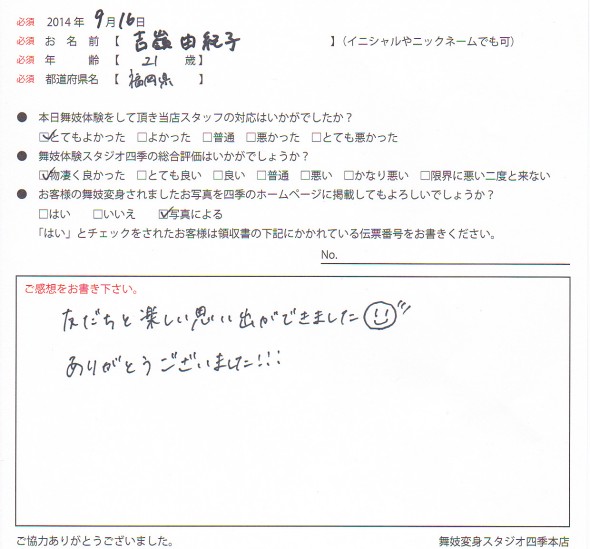 必須 2014年 9月16日
必須 お 名 前 【 吉嶺 由紀子 】(イニシャルやニックネームでも可)
必須 年 齢 【 21 歳】
必須 都道府県名 【 福岡県 】
● 本日舞妓体験をして頂き当店スタッフの対応はいかがでしたか？
☑とてもよかった □よかった □普通 □悪かった □とても悪かった
● 舞妓体験スタジオ四季の総合評価はいかがでしょうか？
☑物凄く良かった □とても良い □良い □普通 □悪い □かなり悪い □限界に悪い二度と来ない
● お客様の舞妓変身されましたお写真を四季のホームページに掲載してもよろしいでしょうか？
□はい □いいえ ☑写真による
「はい」とチェックをされたお客様は領収書の下記にかかれている伝票番号をお書きください。
No.
ご感想をお書き下さい。
友だちと楽しい思い出ができました
ありがとうございました!!!
ご協力ありがとうございました。 舞妓変身スタジオ四季本店